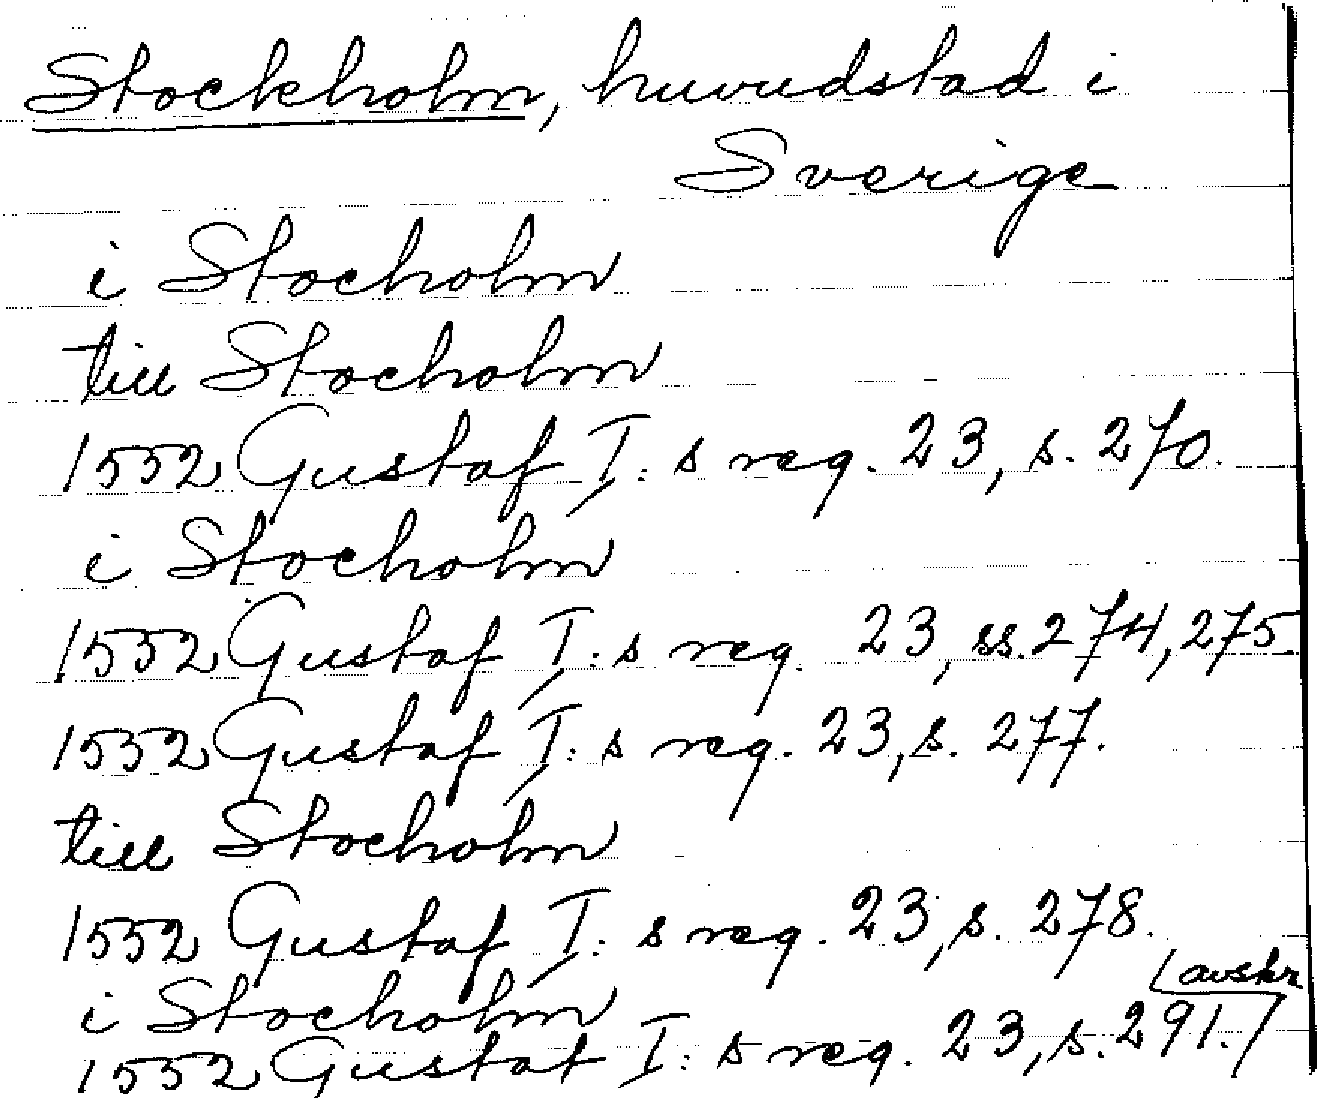 Stockholm, huvudstad i
Sverige
i Stocholm
till Stocholm
1552 Gustaf I: s reg. 23, s. 270.
i Stocholm
1552 Gustaf I: s reg. 23, ss. 274, 275.
1552 Gustaf I: s reg. 23, s. 277.
till Stocholm
1552 Gustaf I: s reg. 23, s. 278.
(avskr
i Stocholm
1552 Gustaf I: s reg. 23, s. 291.)